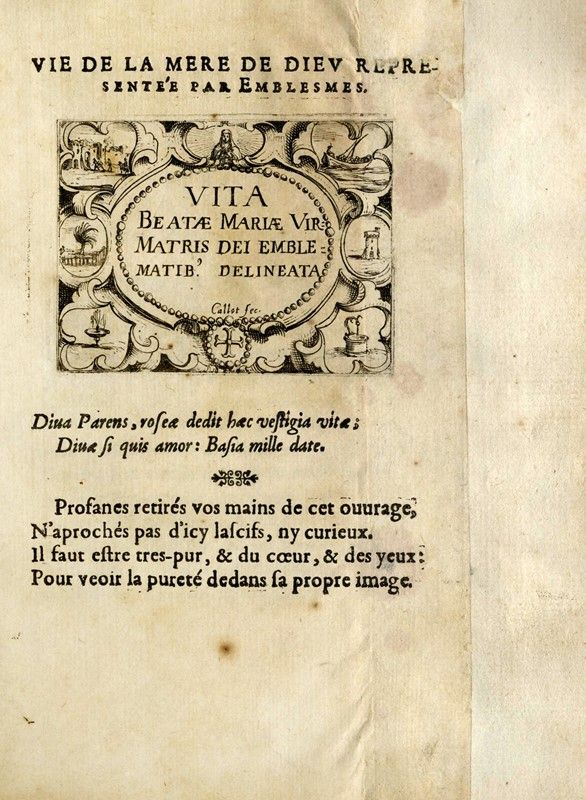 VIE DE LA MERE DE DIEV REPRE-
SENTE'E PAR EMBLESMES.
VITA
BEATÆ MARIÆ VIR:
MATRIS DEI EMBLE:
MATIB.⁹ DELINEATA
Callot fec.
Diua Parens, roſeæ dedit hæc veſtigia vitæ;
Diuæ ſi quis amor: Baſia mille date.
Profanes retirés vos mains de cet ouurage,
N'aprochés pas d'icy laſcifs, ny curieux.
Il faut eſtre tres-pur, & du cœur, & des yeux:
Pour veoir la pureté dedans ſa propre image.